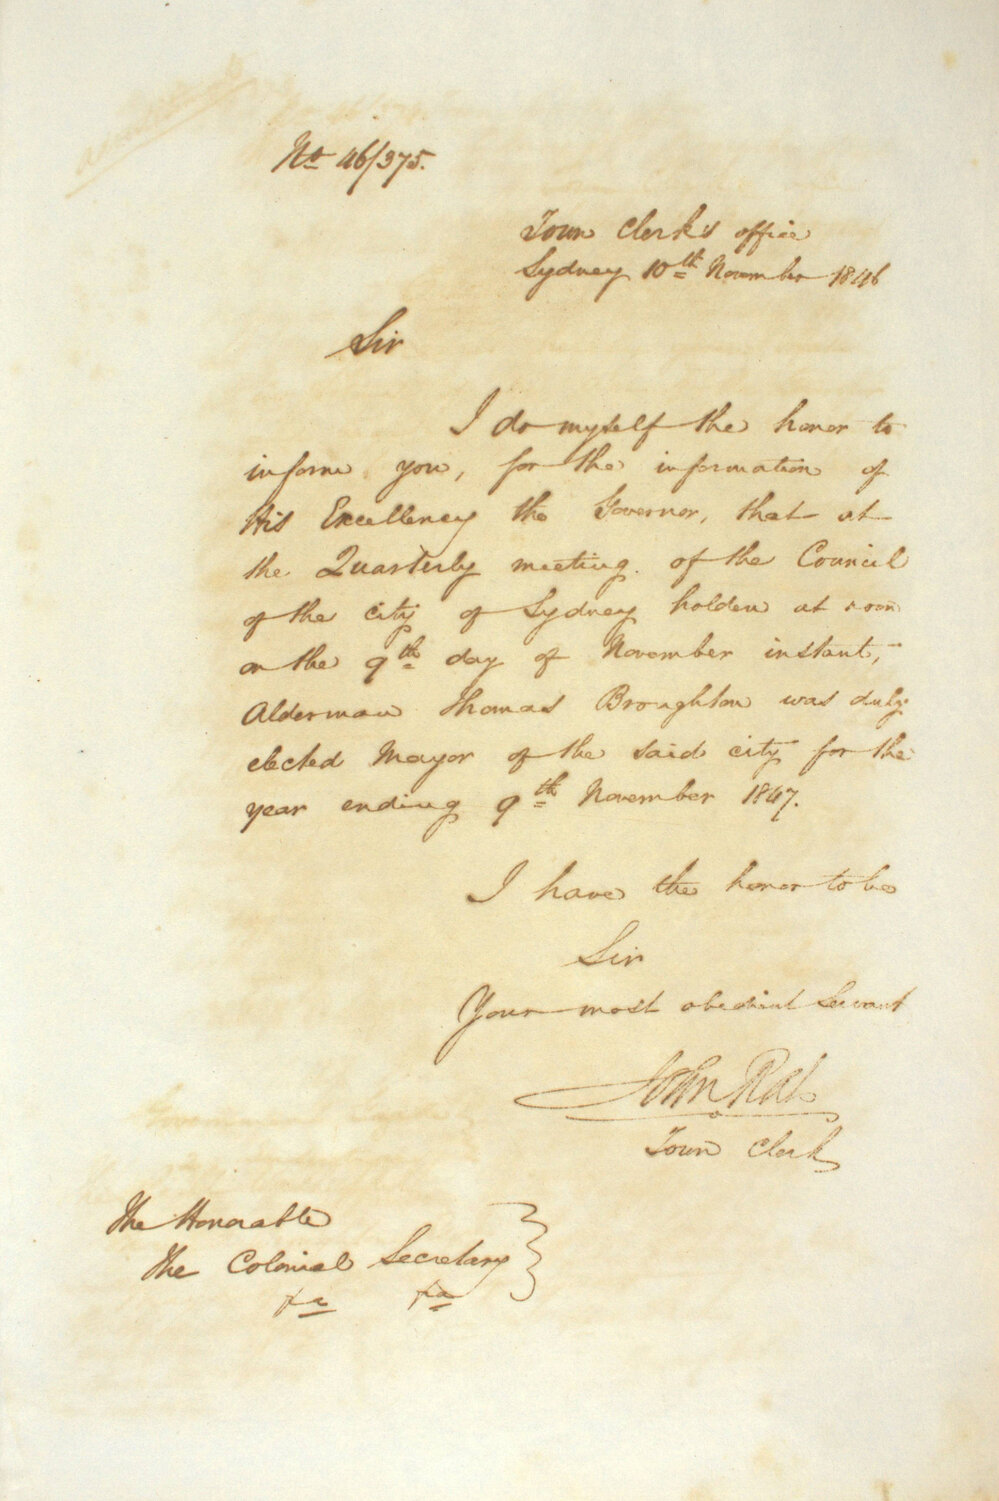 No 46/375.
Town Clerk's office
Sydney 10th November 1846
Sir
I do myself the honor to
inform you, for the information of
His Excellency the Governor, that at
the Quarterly meeting of the Council
of the city of Sydney holden at noon
on the 9th day of November instant,
Alderman Thomas Broughton was duly
elected Mayor of the said city for the
year ending 9th November 1847.
I have the honor to be
Sir
Your most obedient Servant
John Rae
Town Clerk
The Honorable
The Colonial Secretary
&c &c